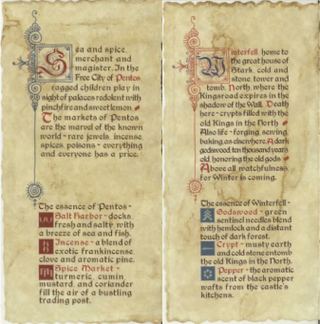 Sea and spice,
merchant and
magister. In the
Free City of Pentos
ragged children play in
sight of palaces redolent with
pinchfire and sweet lemon.
The markets of Pentos
are the marvel of the known
world - rare jewels, incense
spices, poisons - everything
and everyone has a price.
The essence of Pentos -
Salt Harbor - docks
fresh and salty with
a breeze of sea and fish.
Incense - a blend of
exotic frankincense,
clove and aromatic pine.
Spice Market -
turmeric, cumin,
mustard, and coriander
fill the air of a bustling
trading post.
Winterfell, home to
the great house of
Stark, cold and
stone, tower and
tomb. North where the
Kingsroad expires in the
shadow of the Wall. Death
here - crypts filled with the
old Kings in the North
Also life - forging, sewing,
baking, as elsewhere. A dark
godswood, ten thousand years
old, honoring the old gods
Above all, watchfulness
for Winter is coming.
The essence of Winterfell -
Godswood - green
sentinel needles blend
with hemlock and a distant
touch of dark forest.
Crypt - musty earth
and cold stone entomb
the old Kings in the North.
Pepper - the aromatic
scent of black pepper
wafts from the castle's
kitchens.